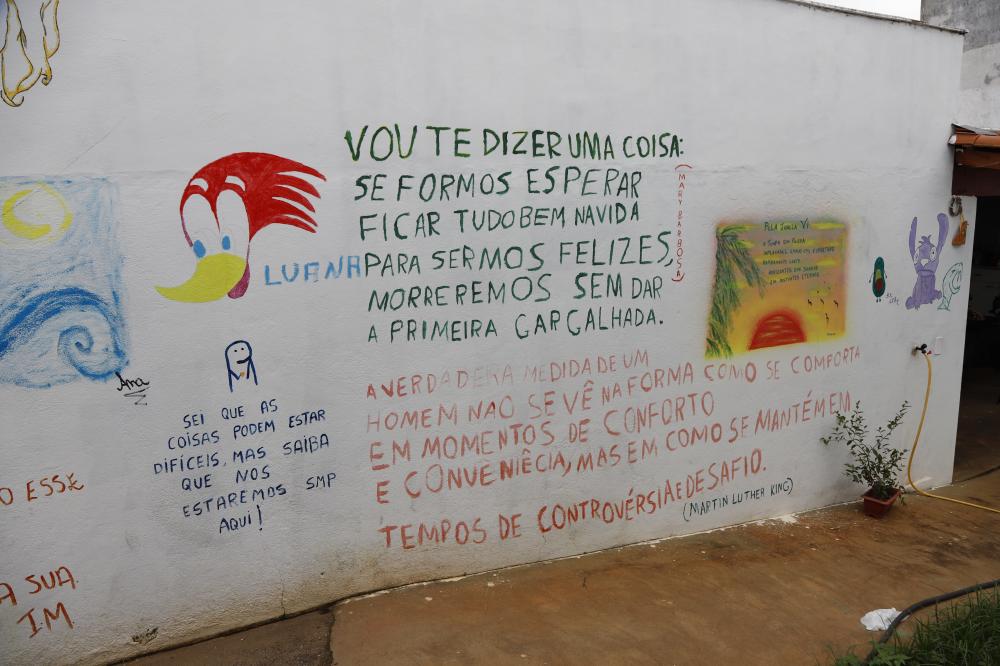 VOU TE DIZER UMA COISA:
SE FORMOS ESPERAR
FICAR TUDO BEM NA VIDA
PARA SERMOS FELIZES,
MORREREMOS SEM DAR
A PRIMEIRA GARGALHADA.
(MARY BARBOSA)
LUANA
Ana
SEI QUE AS
COISAS PODEM ESTAR
DIFÍCEIS, MAS SAIBA
QUE NOS
ESTAREMOS SMP
AQUI!
A VERDADEIRA MEDIDA DE UM
HOMEM NAO SE VÊ NA FORMA COMO SE COMFORTA
EM MOMENTOS DE CONFORTO
E CONVENIÊCIA, MAS EM COMO SE MANTÉM EM
TEMPOS DE CONTROVÉRSIA E DESAFIO.
(MARTIN LUTHER KING)
PELA JANELA VI
O TEMPO EM POEIRA
HORIZONTES QUE SONHEI
EM INSTANTES ETERNOS
O ESSE
A SUA
I.M.